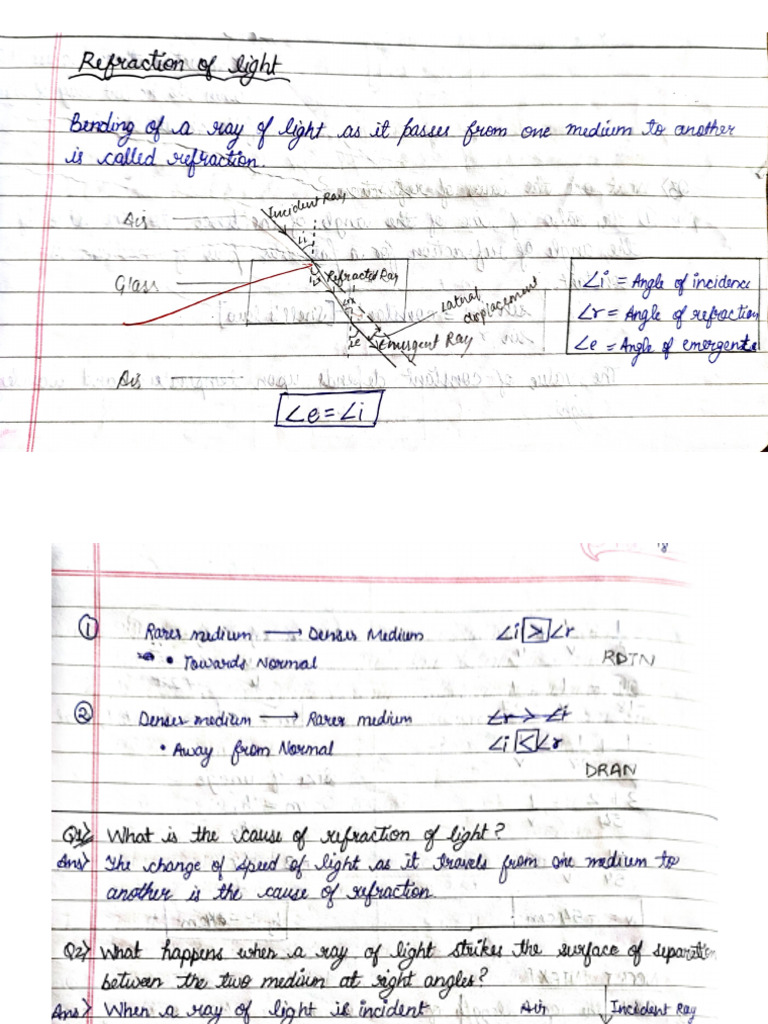 Refraction of light
Bending of a ray of light as it passes from one medium to another
is called refraction.
Incident Ray
Air
∠i
Glass
Refracted Ray
∠r
Lateral displacement
∠i = Angle of incidence
∠r = Angle of refraction
∠e = Angle of emergent
∠e
Emergent Ray
Air
∠e = ∠i
18
① Rarer medium → Denser Medium ∠i > ∠r
• Towards Normal RDTN
② Denser medium → Rarer medium ∠r > ∠i
• Away from Normal ∠i < ∠r
DRAN
Q1) What is the cause of refraction of light?
Ans) The change of speed of light as it travels from one medium to
another is the cause of refraction.
Q2) What happens when a ray of light strikes the surface of separation
between the two medium at right angles?
Ans) When a ray of light is incident Air Incident Ray